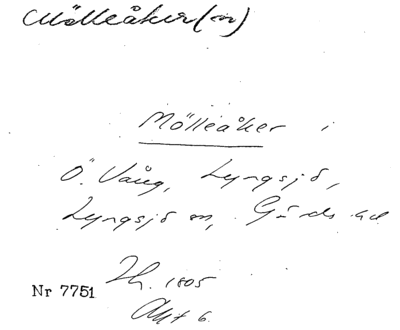 Mölleåker(n)
Mölleåker i
Ö. Vång, Lyngsjö,
Lyngsjö sn, Gärds hd
Lh. 1805
Nr 7751
Akt 6.